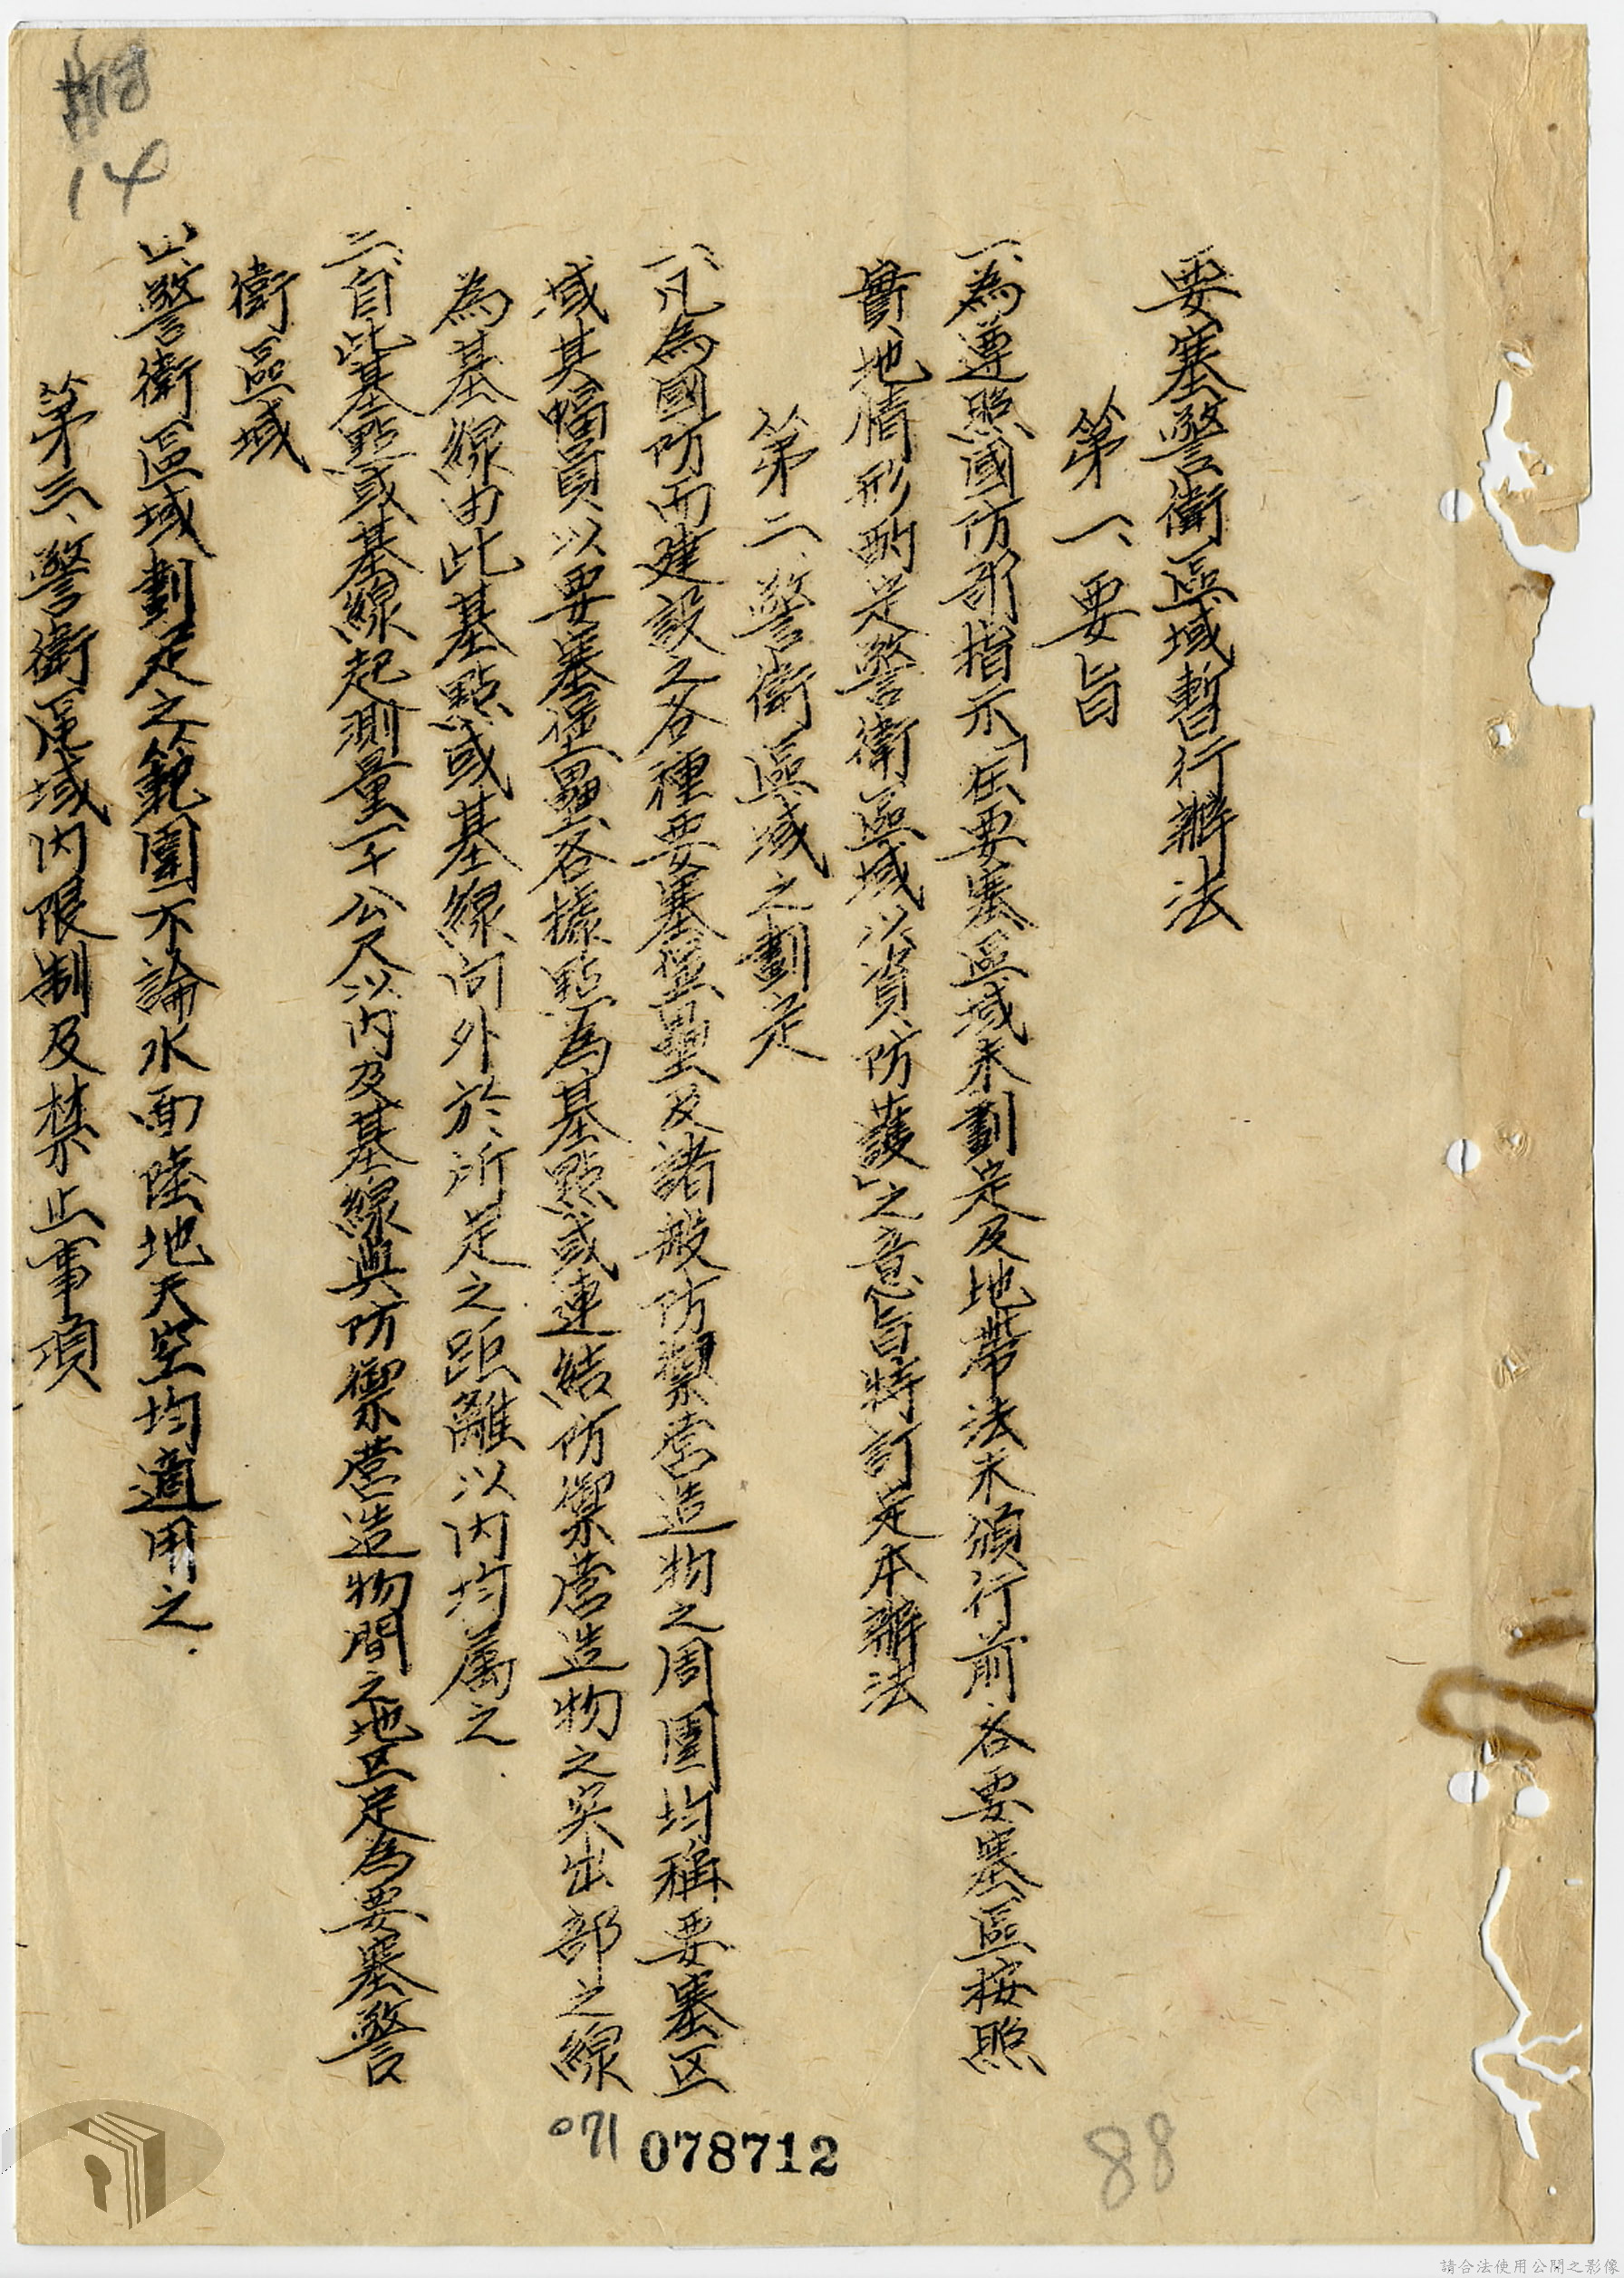 要塞警衛區域暫行辦法
第一、要旨
一、為遵照國防部指示「在要塞區域未劃定及地帶法未頒行前各要塞區按照
實地情形酌定警衛區域以資防護」之意旨特訂定本辦法
第二、警衛區域之劃定
一、凡為國防而建設之各種要塞堡壘及諸般防禦营造物之周圍均稱要塞区
域其幅員以要塞堡壘各據點為基點或連結防禦营造物之突出部之線
為基線由此基點或基線向外於所定之距離以内均屬之.
二、自此基點或基線起測量一千公尺以内及基線與防禦营造物間之地区定為要塞警
衛區域
三、警衛區域劃定之範圍不論水面陸地天空均適用之.
第三、警衛區域内限制及禁止事項
#18
14
071
078712
88
請合法使用公開之影像